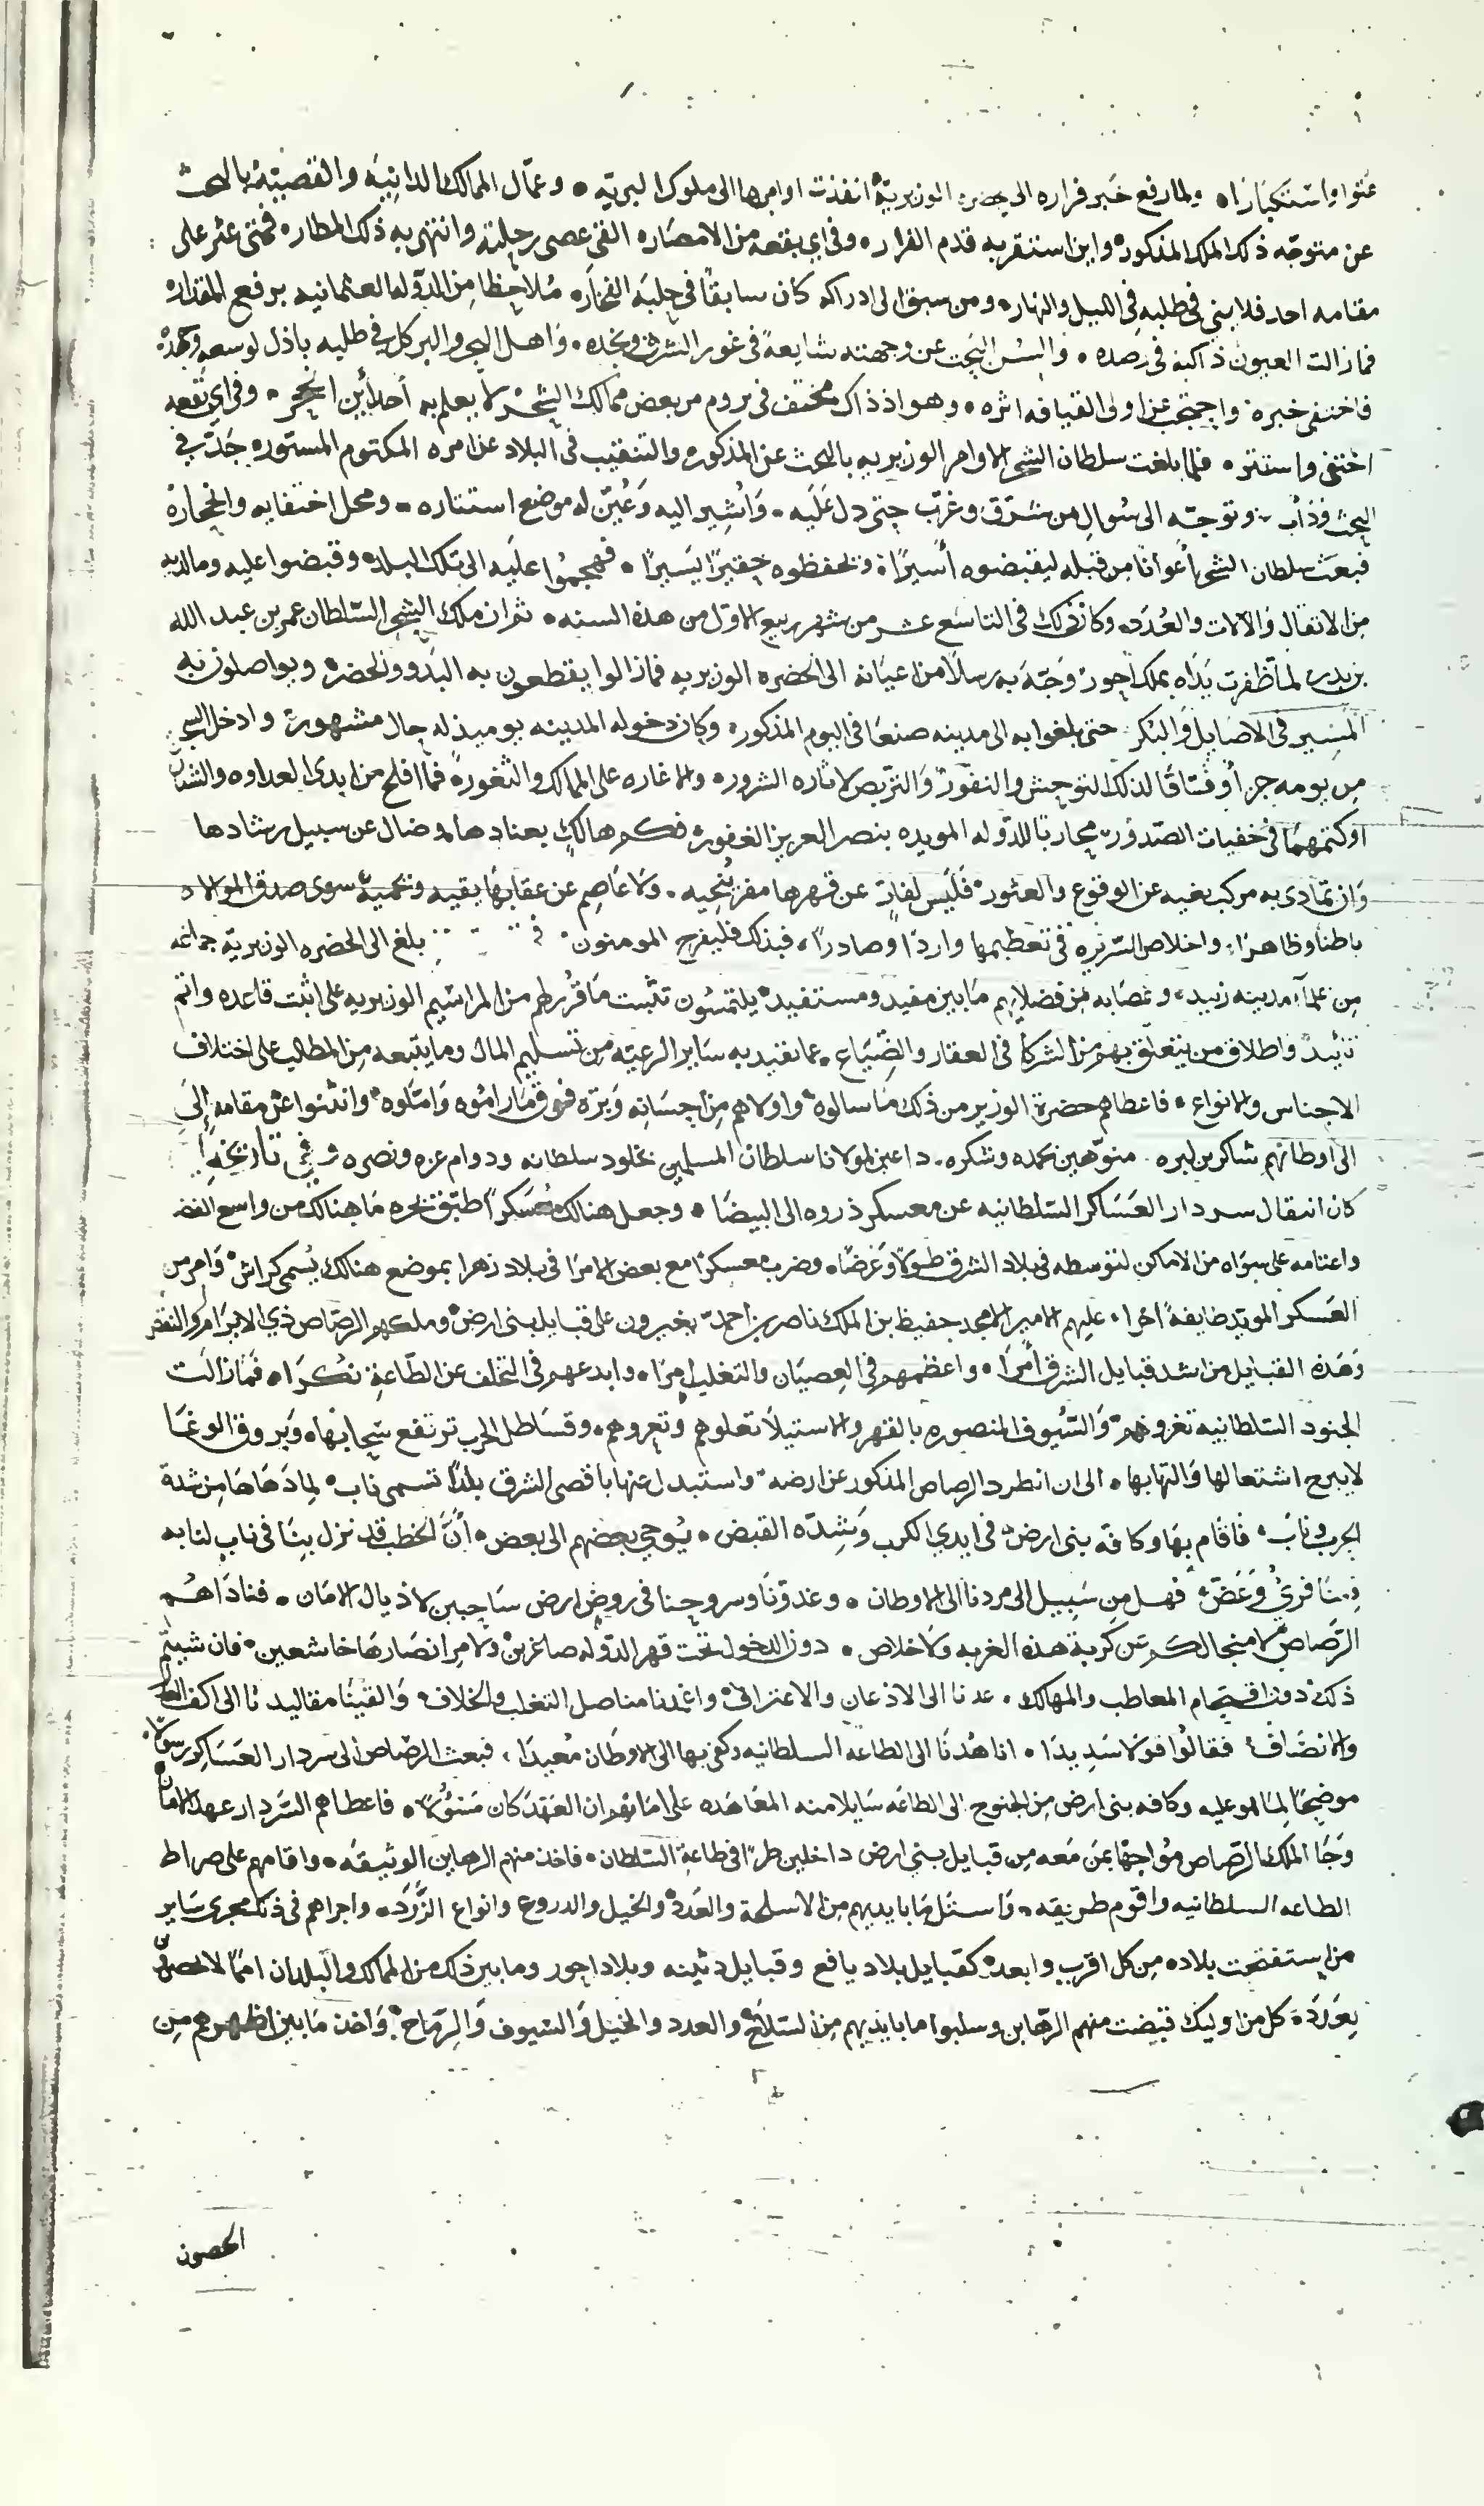 عتوا واستكبارا ولما رفع خبر فراره الى حضره الوزيريه انفذت اوامرها الى ملوك البريه وعمال الممالك الدانيه والقصيه بالبحث
عن متوجه ذلك الملك المذكور واين استقر به قدم الفرار وفي اي بقعه من الامصار القى عصى رحلته وانتهى به ذلك المطار فمتى عثر على
مقامه احد فلا يني في طلبه في الليل والنهار ومن سبق الى ادراكه كان سابقا في حلبة الفخار ملاحظا من الدوله العثمانيه برفع المقدار
فما زالت العيون ذاكيه في رصده والسن البحث عن وجهته شايعة في غور الشرق ونجده واهل البحر والبر كل في طلبه باذل لوسعه وجهده
فاختفى خبره واحتجب عن اولى القيافه اثره وهو اذ ذاك مختف في بروم من بعض ممالك الشحر لا يعلم به أحد أين انحجر وفي اي بقعه
اختفى واستتر فلما بلغت سلطان الشحر الاوامر الوزيريه بالبحث عن المذكور والتنقيب في البلاد عن امره المكتوم المستور جد في
البحث ودأب وتوجه الى سوال من شرق وغرب حتى دل عليه وأشير اليه وعين له موضع استتاره ومحل اختفايه وانحجاره
فبعث سلطان الشحر أعوانا من قبله ليقبضوه أسيرا ويحفظوه حقيرا يسيرا فهجموا عليه الى تلك البلد وقبضوا عليه وما لديه
من الاثقال والآلات والعدد وكان ذلك في التاسع عشر من شهر ربيع الاول من هذه السنه ثم ان ملك الشحر السلطان عمر بن عبد الله
بن بدر لما ظفرت يداه بملك احور وجه به رسلا من اعيانه الى الحضره الوزيريه فما زالوا يقطعون به البدو والحضر ويواصلون به
المسير في الاصايل والبكر حتى بلغوا به الى مدينه صنعا في اليوم المذكور وكان دخوله المدينه يوميذ له حال مشهور وادخل السجن
من يومه جزآ وفتاقا لذلك التوحش والنفور والتربص لاثاره الشرور والاغاره على الممالك والثغور فما افلح من ابدى العداوه والشنان
او كتمهما في خفيات الصدور محاربا للدوله المويده بنصر العزيز الغفور فكم هالك بعنادها وضال عن سبيل رشادها
وان تمادى به مركب بغيه عن الوقوع والعثور فليس لفار عن قهرها مفر ينجيه ولا عاصم عن عقابها يقيه ويحميه سوى صدق الموالاه
باطنا وظاهرا واخلاص السريره في تعظيمها واردا وصادرا فبذلك فليفرح المومنون بلغ الى الحضره الوزيريه جماعه
من علمآء مدينه زبيد وعصابه من فضلايهم ما بين مفيد ومستفيد يلتمسون تثبت ما قرر لهم من المراسيم الوزيريه على اثبت قاعده واتم
تأييد واطلاق من يتعلق بهم من الشركا في العقار والضياع عما تقيد به ساير الرعيه من تسليم المال وما يتبعه من المطالب على اختلاف
الاجناس والانواع فاعطاهم حضرة الوزير من ذلك ما سالوه واولاهم من احسانه وبره فوق ما راموه واملوه وانثنوا عن مقامه إلى
الى اوطانهم شاكرين لبره منوهين بحمده وشكره داعين لمولانا سلطان المسلمين بخلود سلطانه ودوام عزه ونصره وفي تاريخه
كان انتقال سردار العساكر السلطانيه عن معسكر ذروه الى البيضا وجعل هنالك معسكرا طبق بحره ما هنالك من واسع الفضا
واعتامه على سواه من الاماكن لتوسطه في بلاد الشرق طولا وعرضا وضرب معسكرا مع بعض الامرا في بلاد زهرا بموضع هنالك يسمى كراش وامر من
العسكر المويد طايفة اخرا عليهم الامير الامجد حفيظ بن الملك ناصر بن احمد يغيرون على قبايل بني ارض وملكهم الرصاص ذي الابرام والنقض
وهذه القبايل من اشد قبايل الشرق أمرا واعظمهم في العصيان والتغلب امرا وابدعهم في التخلف عن الطاعة نكرا فما زالت
الجنود السلطانيه تغزوهم والسيوف المنصوره بالقهر والاستيلا تعلوهم وتعروهم وقساطل الحرب ترتفع سحابها وبروق الوغا
لا يبرح اشتعالها والتهابها الى ان انطرد الرصاص المذكور عن ارضه واستبدل عنها باقصى الشرق بلدا تسمى ناب لما دهاها من شدة
الحرب وناب فاقام بها وكافه بني ارض في ايدي الكرب وشده القبض يوحي بعضهم الى بعض أن الخطب قد نزل بنا في ناب لنا به
فرى وعض فهل من سبيل الى مردنا الى الاوطان وغدونا وسروحنا في روض ارض ساحبين لاذيال الامان فناداهم
الرصاص لا منجا لكم عن كربة هذه الغربه ولا خلاص دون الدخول تحت قهر الدوله صاغرين ولامر انصارها خاشعين فان شيتم
ذلك دون اقتحام المعاطب والمهالك عدنا الى الاذعان والاعتراف واغمدنا مناصل التغلب والخلاف والقينا مقاليدنا الى اكف العدل
والانصاف فقالوا قولا سديدا انا هدنا الى الطاعه السلطانيه وكفى بها الى الاوطان معيدا فبعث الرصاص الى سردار العساكر رسولا
موضحا لما هو عليه وكافه بني ارض من الجنوح الى الطاعه سايلا منه المعاهده على امانهم ان العهد كان مسؤلا فاعطاهم السردار عهد الامان
وجا الملك الرصاص مواجها بمن معه من قبايل بني ارض داخلين طرا في طاعة السلطان فاخذ منهم الرهاين الوثيقه واقامهم على صراط
الطاعه السلطانيه واقوم طريقه واستل ما بايديهم من الاسلحة والعدد والخيل والدروع وانواع الزرد واجراهم في ذلك مجرى ساير
من استفتحت بلاده من كل اقرب وابعد كقبايل بلاد يافع وقبايل دثينه وبلاد احور وما بين ذلك من الممالك والبلدان امما لا تحصى
بعدد كل من اوليك قبضت منهم الرهاين وسلبوا ما بايديهم من السلاح والعدد والخيل والسيوف والرماح واخذ ما بين اظهرهم من
الحصون